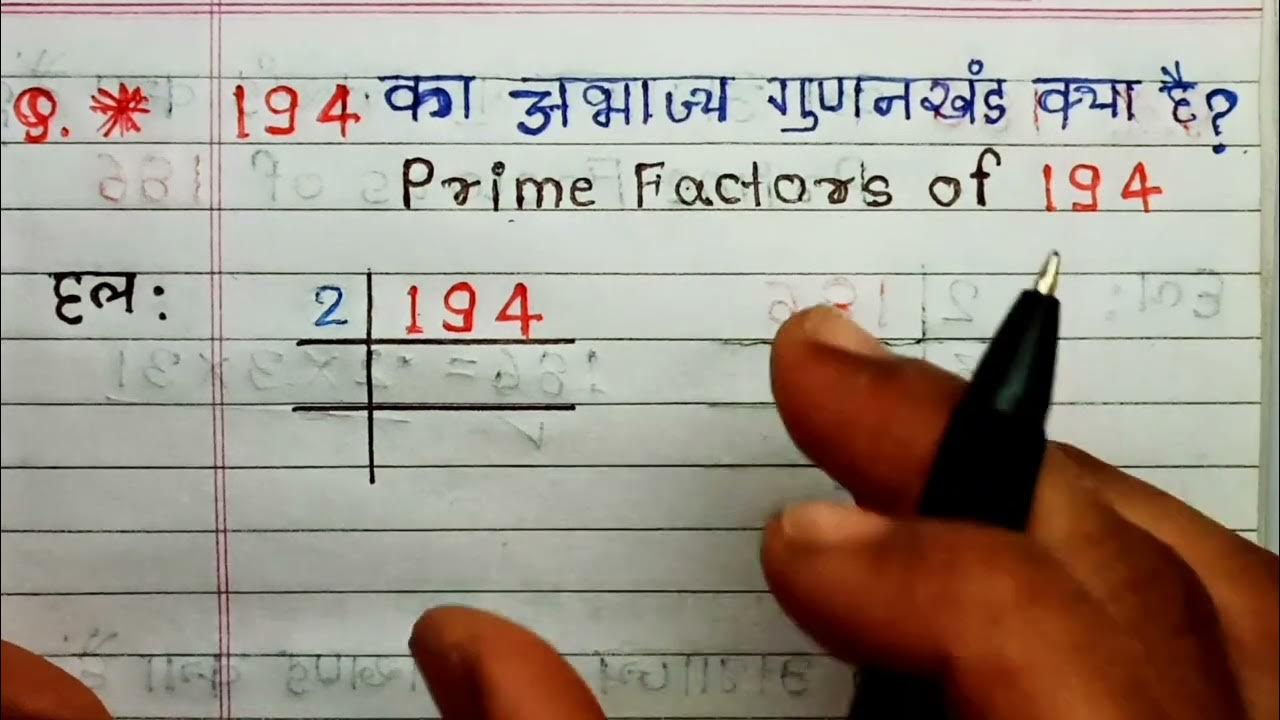 Q. * 194 का अभाज्य गुणनखंड क्या है?
Prime Factors of 194
हल: 2 | 194